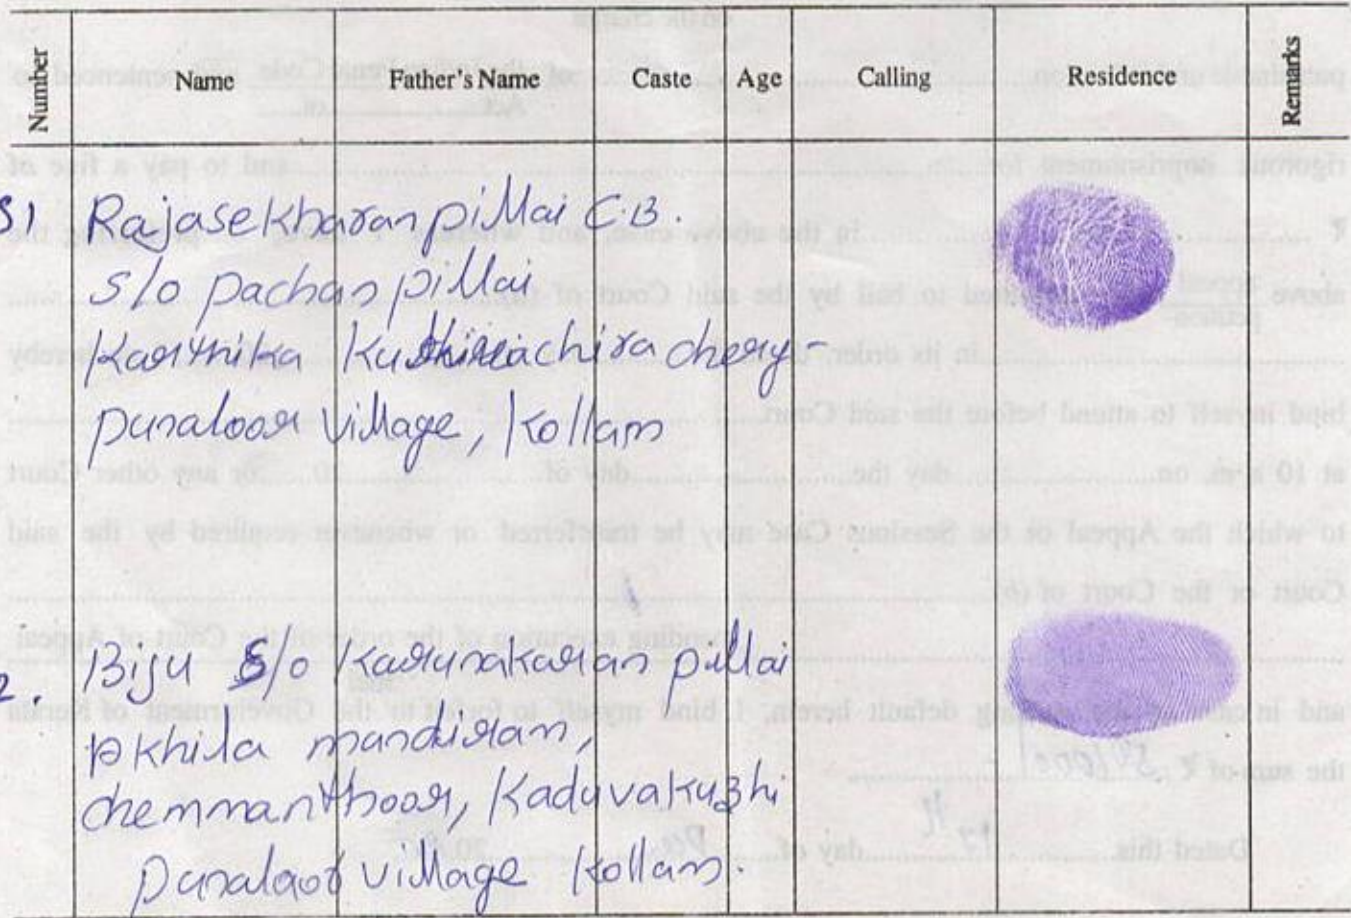 Number Name Father's Name Caste Age Calling Residence Remarks
S1 Rajasekharan pillai C.B.
S/o pachan pillai
Karthika chery-
punaloor village, Kollam
2. Biju S/o Karunakaran pillai
Akhila mandiram,
chemmanthoor, Kaduvakuzhi
punaloor village Kollam.